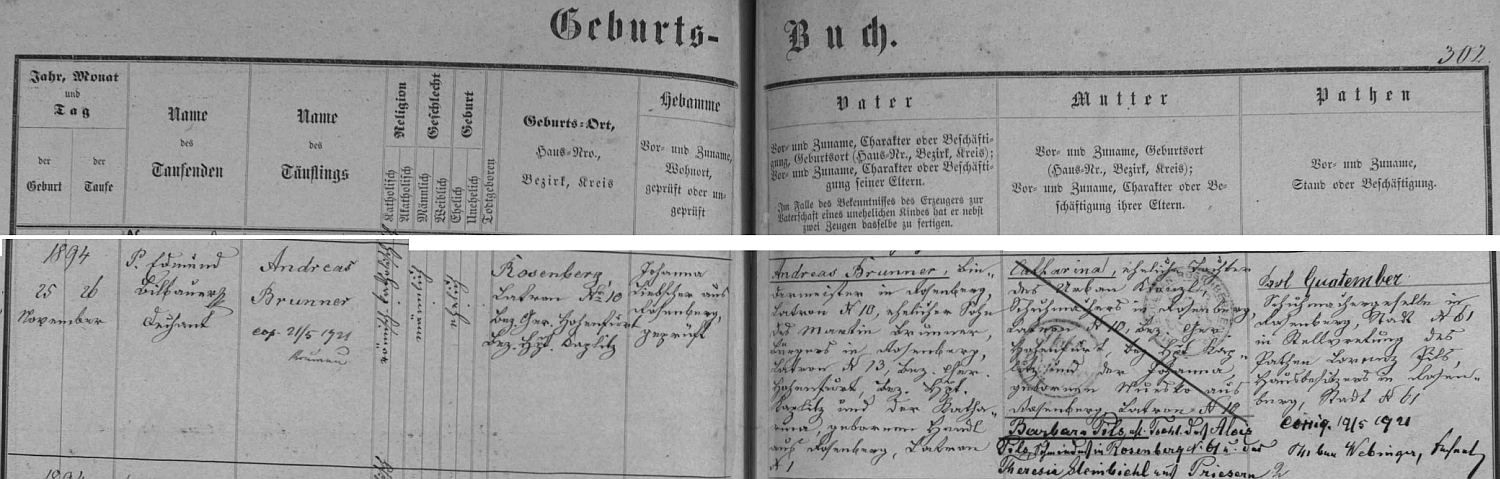 Geburts-Buch.
302
Jahr, Monat
und
Tag
der
Geburt
der
Taufe
Name
des
Taufenden
Name
des
Täuflings
Religion
Katholisch
Akatholisch
Geschlecht
Männlich
Weiblich
Geburt
Ehelich
Unehelich
Todtgeboren
Geburts-Ort,
Haus-Nro.,
Bezirk, Kreis
Hebamme
Vor- und Zuname,
Wohnort,
geprüft oder un-
geprüft
Vater
Vor- und Zuname, Charakter oder Beschäfti-
gung, Geburtsort (Haus-Nr., Bezirk, Kreis);
Vor- und Zuname, Charakter oder Beschäfti-
gung seiner Eltern.
Im Falle des Bekenntnisses des Erzeugers zur
Vaterschaft eines unehelichen Kindes hat er nebst
zwei Zeugen dasselbe zu fertigen.
Mutter
Vor- und Zuname, Geburtsort
(Haus-Nr., Bezirk, Kreis);
Vor- und Zuname, Charakter oder Be-
schäftigung ihrer Eltern.
Pathen
Vor- und Zuname,
Stand oder Beschäftigung.
1894
25 26
November
P. Edmund
Bilbauer
Dechant
Andreas
Brunner
cop. 21/5 1921
Krumau
männl.
ehelich
Rosenberg
Latron No 10
Bez. Ger. Hohenfurt
Bez. Hpt. Kaplitz
Johanna
Liebscher aus
Rosenberg,
geprüft
Andreas Brunner, Bin-
dermeister in Rosenberg,
Latron N 10, ehelicher Sohn
des Martin Brunner,
Bürgers in Rosenberg,
Latron N 13, Bez. Ger.
Hohenfurt, Bez. Hpt.
Kaplitz und der Katha-
rina geborenen Handl
aus Rosenberg, Latron
N 1
Catharina, eheliche Tochter
des Urban
Schuhmachers in Rosenberg,
Latron N 10, Bez. Ger.
Hohenfurt, Bez. Hpt. Kap-
litz und der Johanna,
geborenen aus
Rosenberg Latron N 10
Barbara Pils, ehl. Tocht. des Alois
Pils, Schmiedes in Rosenberg N. 61 u. der
Theresia Steinbichl aus Priesern 2
Karl Quatember
Schuhmachergeselle in
Rosenberg, Stadt N 61
in Stellvertretung des
Pathen Lorenz Pils,
Hausbesitzers in Rosen-
berg, Stadt N 61
corrig. 19/5 1921
Webinger, Dechant
1894